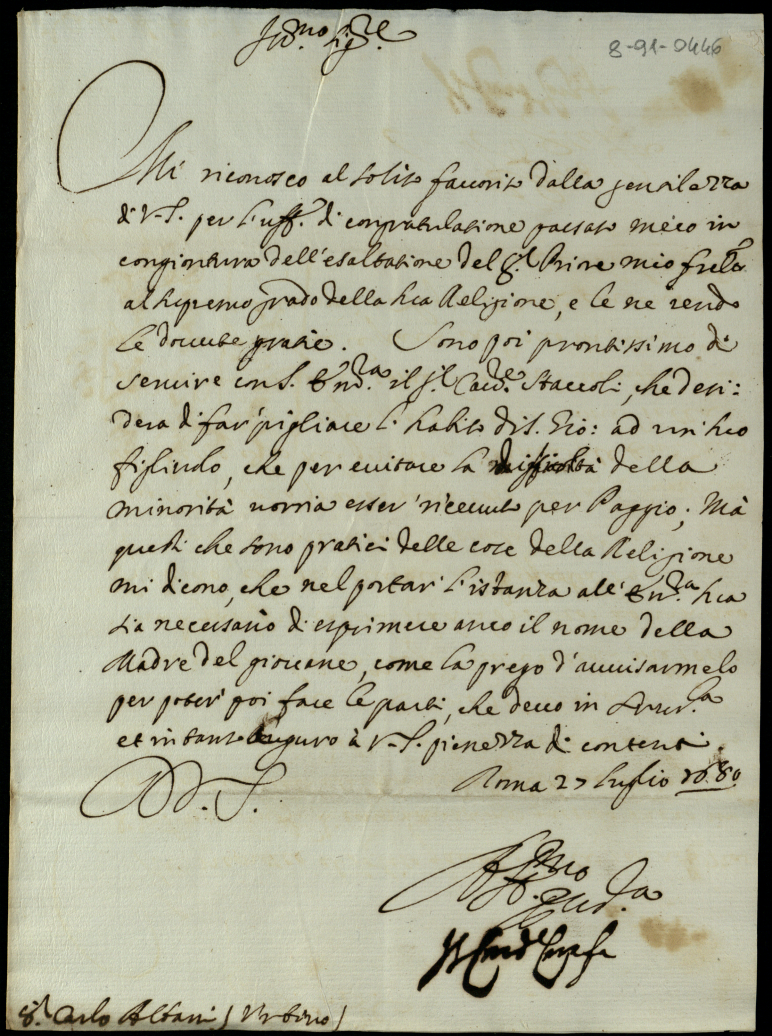 Ill.mo Sig.re
8-91-0446
Mi riconosco al solito favorito dalla gentilezza
di V.S. per l'uff.o di congratulatione passato meco in
congiontura dell'esaltatione del S.r Prior mio frello
al supremo grado della sua Religione, e le ne rendo
le dovute gratie. Sono poi prontissimo di
servire con S. Em.za il S.r Cav.re Staccoli, che desi:
dera di far' pigliare l'habito di S. Gio: ad un suo
figliuolo, che per evitare la difficoltà della
minorità vorria esser' ricevuto per Paggio; Mà
questi che sono pratici delle cose della Religione
mi dicono, che nel portar' l'istanza all'Em.za sua
sia necessario di esprimere anco il nome della
Madre del giovane, come la prego d'avvisarmelo
per poter' poi fare le parti, che devo in
et in tanto auguro à V.S. pienezza di contenti.
Roma 27 Luglio 1680
D.V.S.
Aff.mo
Il Card.l Carafa
S.r Carlo Albani (Urbino)